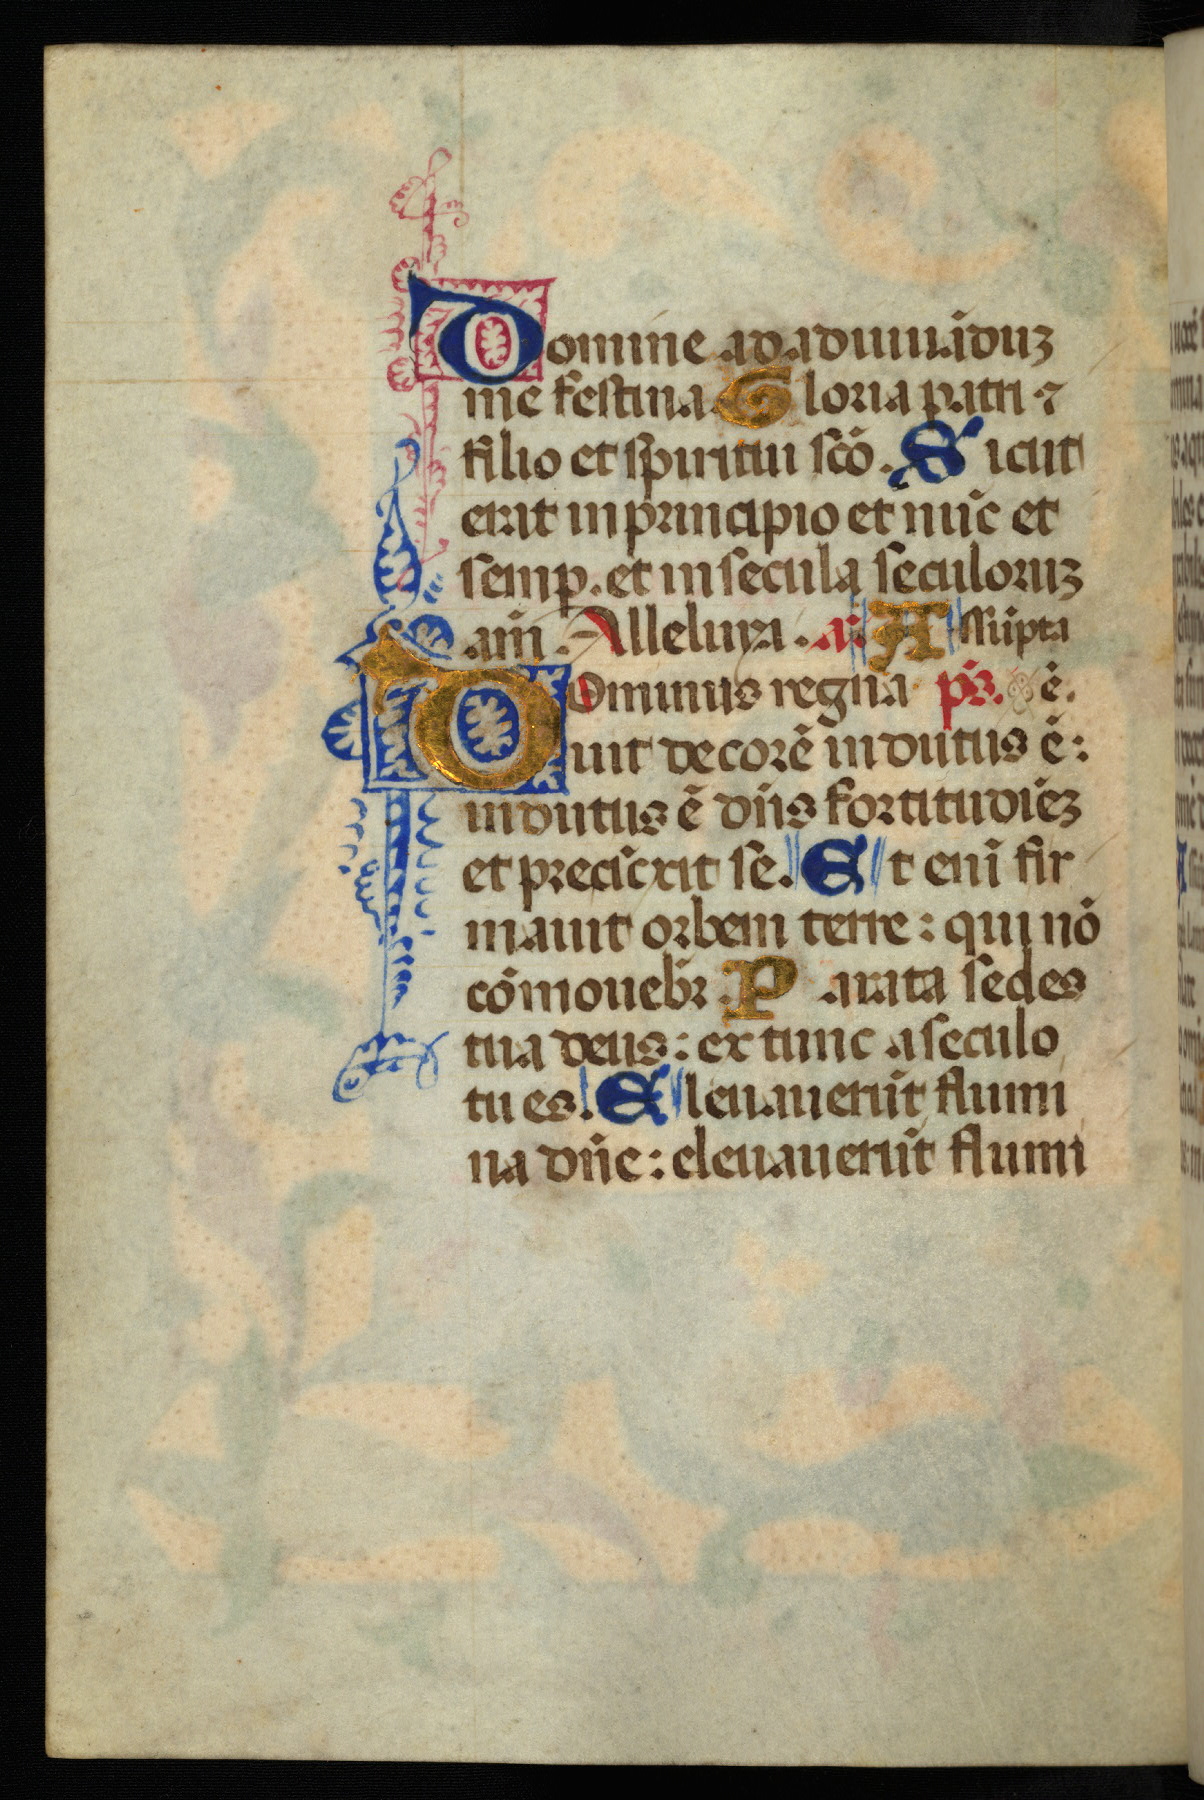 Domine ad adiuuãduʒ
me festina. Gloria patri ⁊
filio et spiritui scõ. Sicut
erat in principio et nũc et
semp. et in secula seculoruʒ
am̃. Alleluya. añ Assũpta
Dominus regna p̃s. ẽ.
uit decorẽ indutus ẽ:
indutus ẽ dñs fortitudĩeʒ
et precĩcxit se. Et enĩ fir
mauit orbem terre: qui nõ
cõmouebr̃. Parata sedes
tua deus: ex tunc a seculo
tu es. Eleuauerũt flumi
na dñe: eleuauerũt flumi